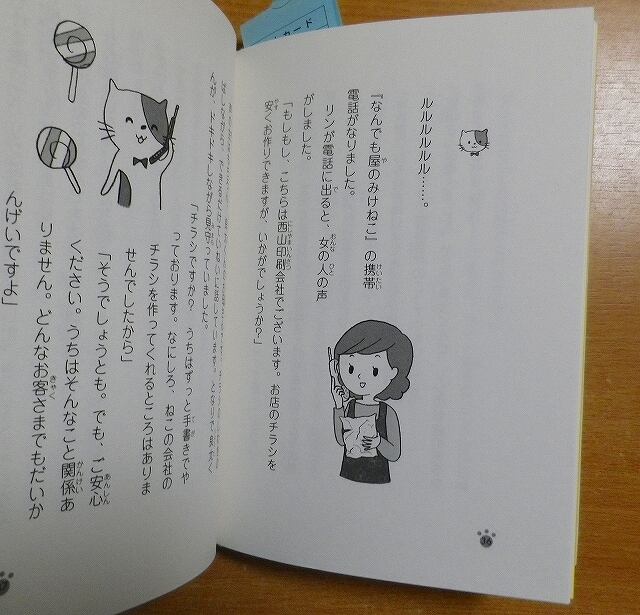 カード
ルルルルルル……。
『なんでも屋のみけねこ』の携帯
電話がなりました。
リンが電話に出ると、女の人の声
がしました。
「もしもし、こちらは西山印刷会社でございます。お店のチラシを
安くお作りできますが、いかがでしょうか？」
36
んが、ドキドキしながら見守っていました。
「チラシですか？　うちはずっと手書きでや
っております。なにしろ、ねこの会社の
チラシを作ってくれるところはありま
せんでしたから」
「そうでしょうとも。でも、ご安心
ください。うちはそんなこと関係あ
りません。どんなお客さまでもだいか
んげいですよ」